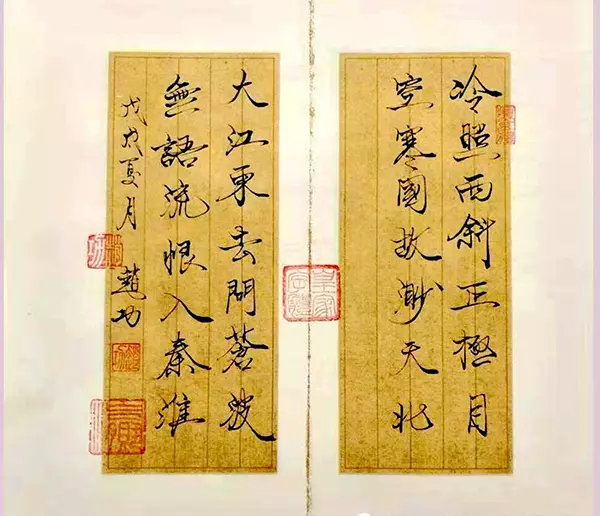 冷照西斜正極目
空寒國故渺天北
大江東去問蒼波
無語流恨入秦淮
戊戌夏月 功